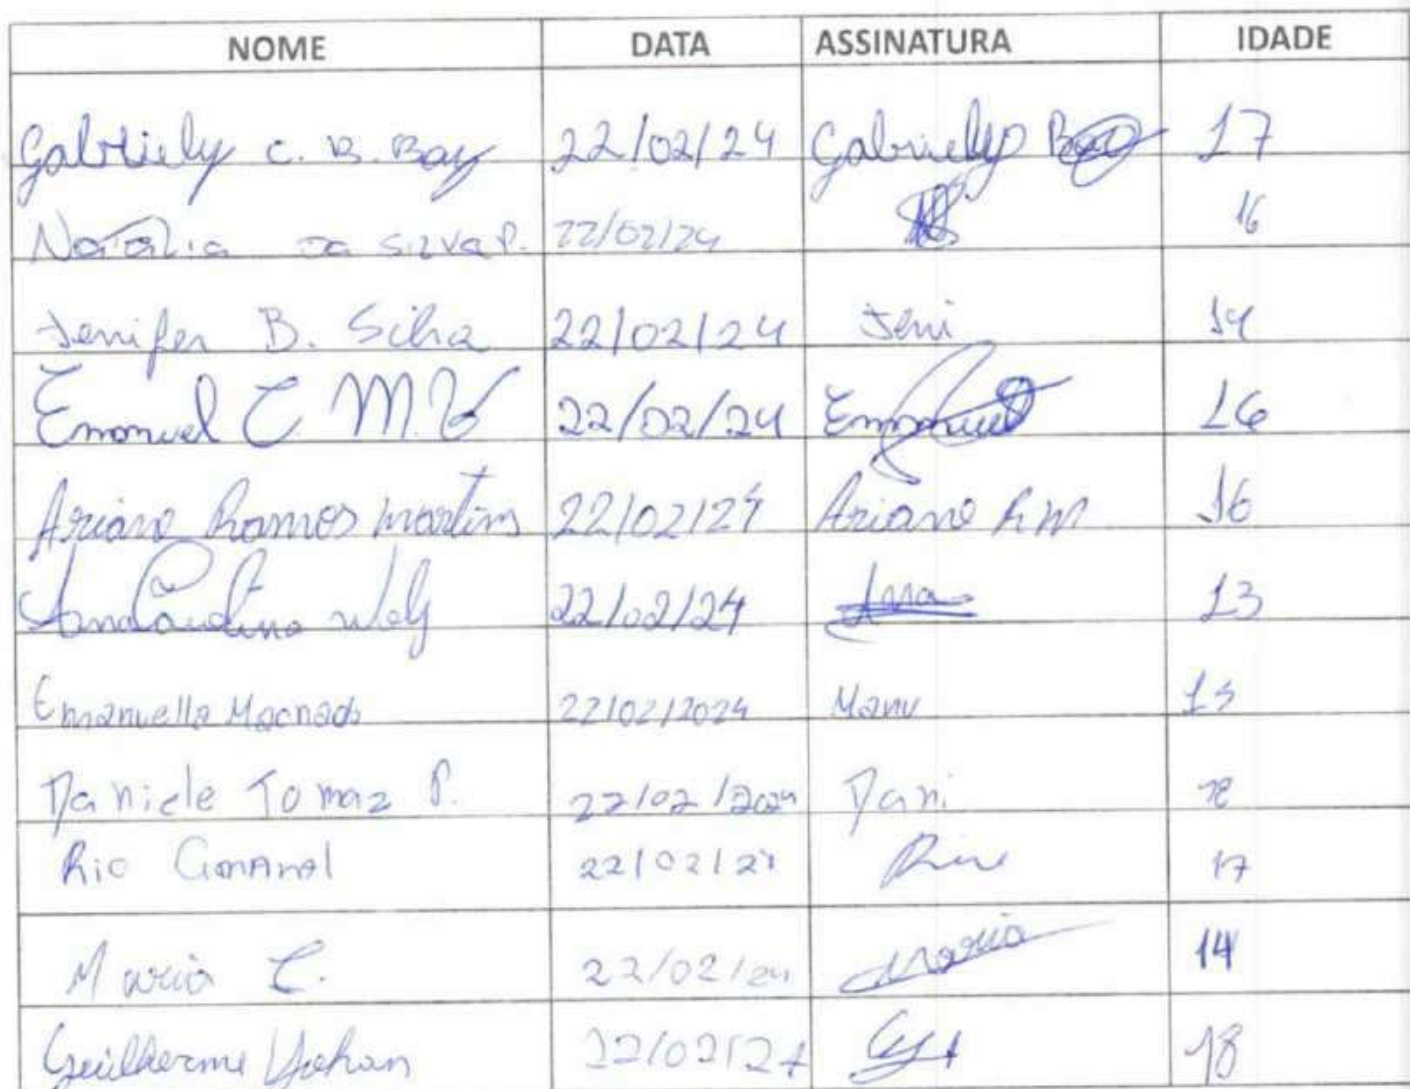 NOME DATA ASSINATURA IDADE
Gabriely C. B. Bay 22/02/24 Gabriely Bay 17
Natalia da Silva P. 22/02/24 16
Jenifer B. Silva 22/02/24 Jeni 14
Emanuel C. M. 22/02/24 Emanuel 16
Ariane Ramos martins 22/02/24 Ariane R M 16
22/02/24 Ana 13
Emanuella Machado 22/02/2024 Manu
Daniele Tomaz P. 22/02/2024 Dani 18
Rio 22/02/24 17
Maria C. 22/02/24 Maria 14
Guilherme Yohan 22/02/24 18